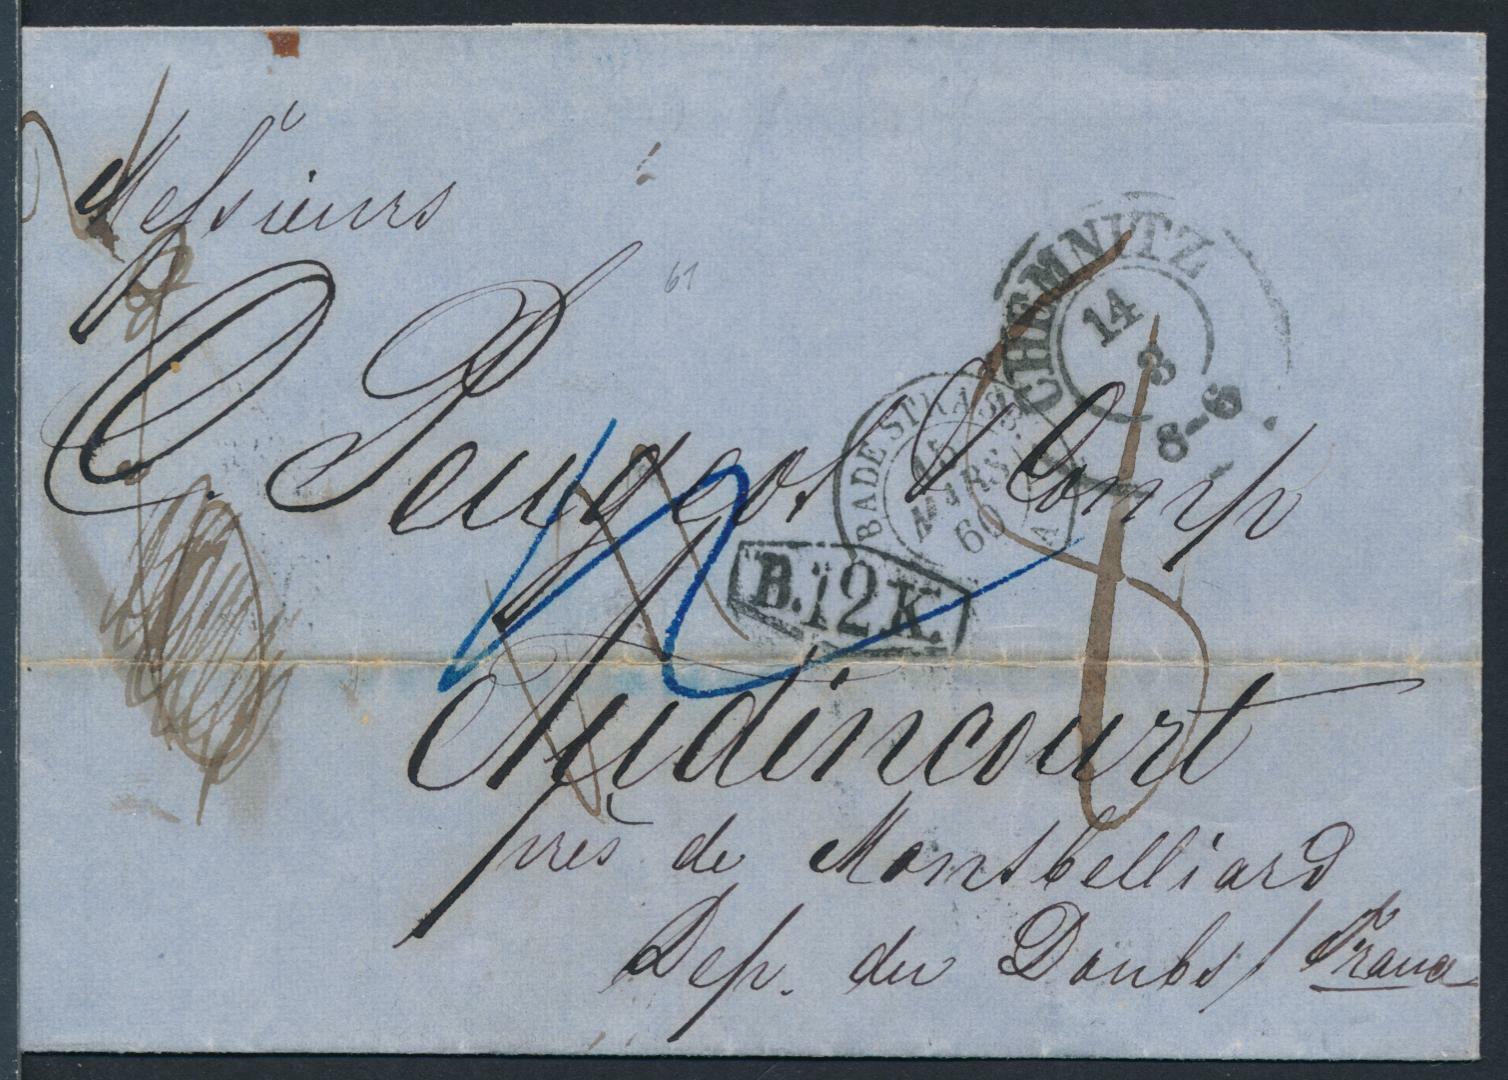 Messieurs
61
CHEMNITZ
14
3
8-6
O. Peugeot & Comp
BADE STRASB. A
15
MARS
60
B.12K.
Audincourt
près de Montbelliard
Dep. du Doubs / France